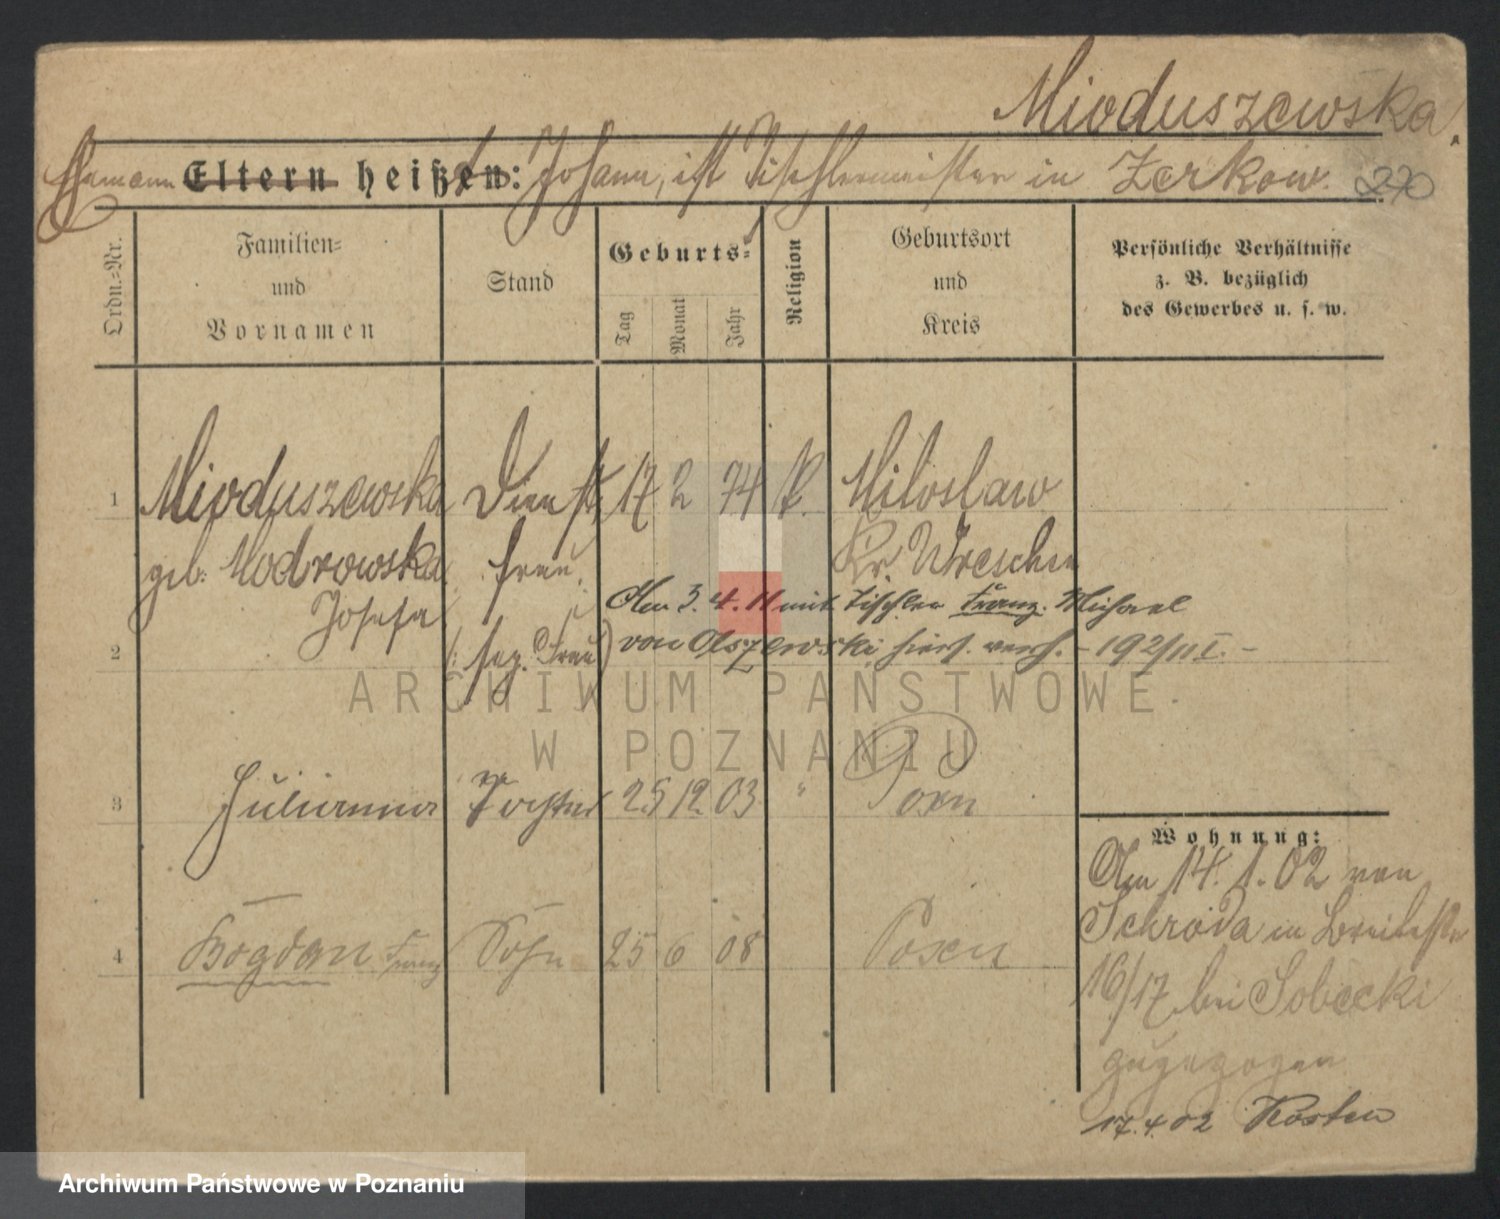 Mioduszewska
Ehemann Eltern heißen: Johann, ist Tischlermeister in Zerkow. 270
Ordn.=Nr.
Familien=
und
Vornamen
Stand
Geburts=
Tag
Monat
Jahr
Religion
Geburtsort
und
Kreis
Persönliche Verhältnisse
z. B. bezüglich
des Gewerbes u. s. w.
1 Mioduszewska Dienst 17 2 74 k. Miloslaw
geb. Modrowska frau. Kr. Wreschen
Josefa
Am 3. 4. 11 mit Tischler Franz Michael
2 (: sep. Frau) von Olszewski hiers. verh. - 192/11 I. -
ARCHIWUM PAŃSTWOWE
W POZNANIU
3 Julianna Tochter 25 12 03 " Posen
Wohnung:
Am 14. 1. 02 von
Schroda in Breitestr
16/17 bei Sobecki
zugezogen
17.4.02 Kosten
4 Bogdan Franz Sohn 25 6 08 Posen
Archiwum Państwowe w Poznaniu